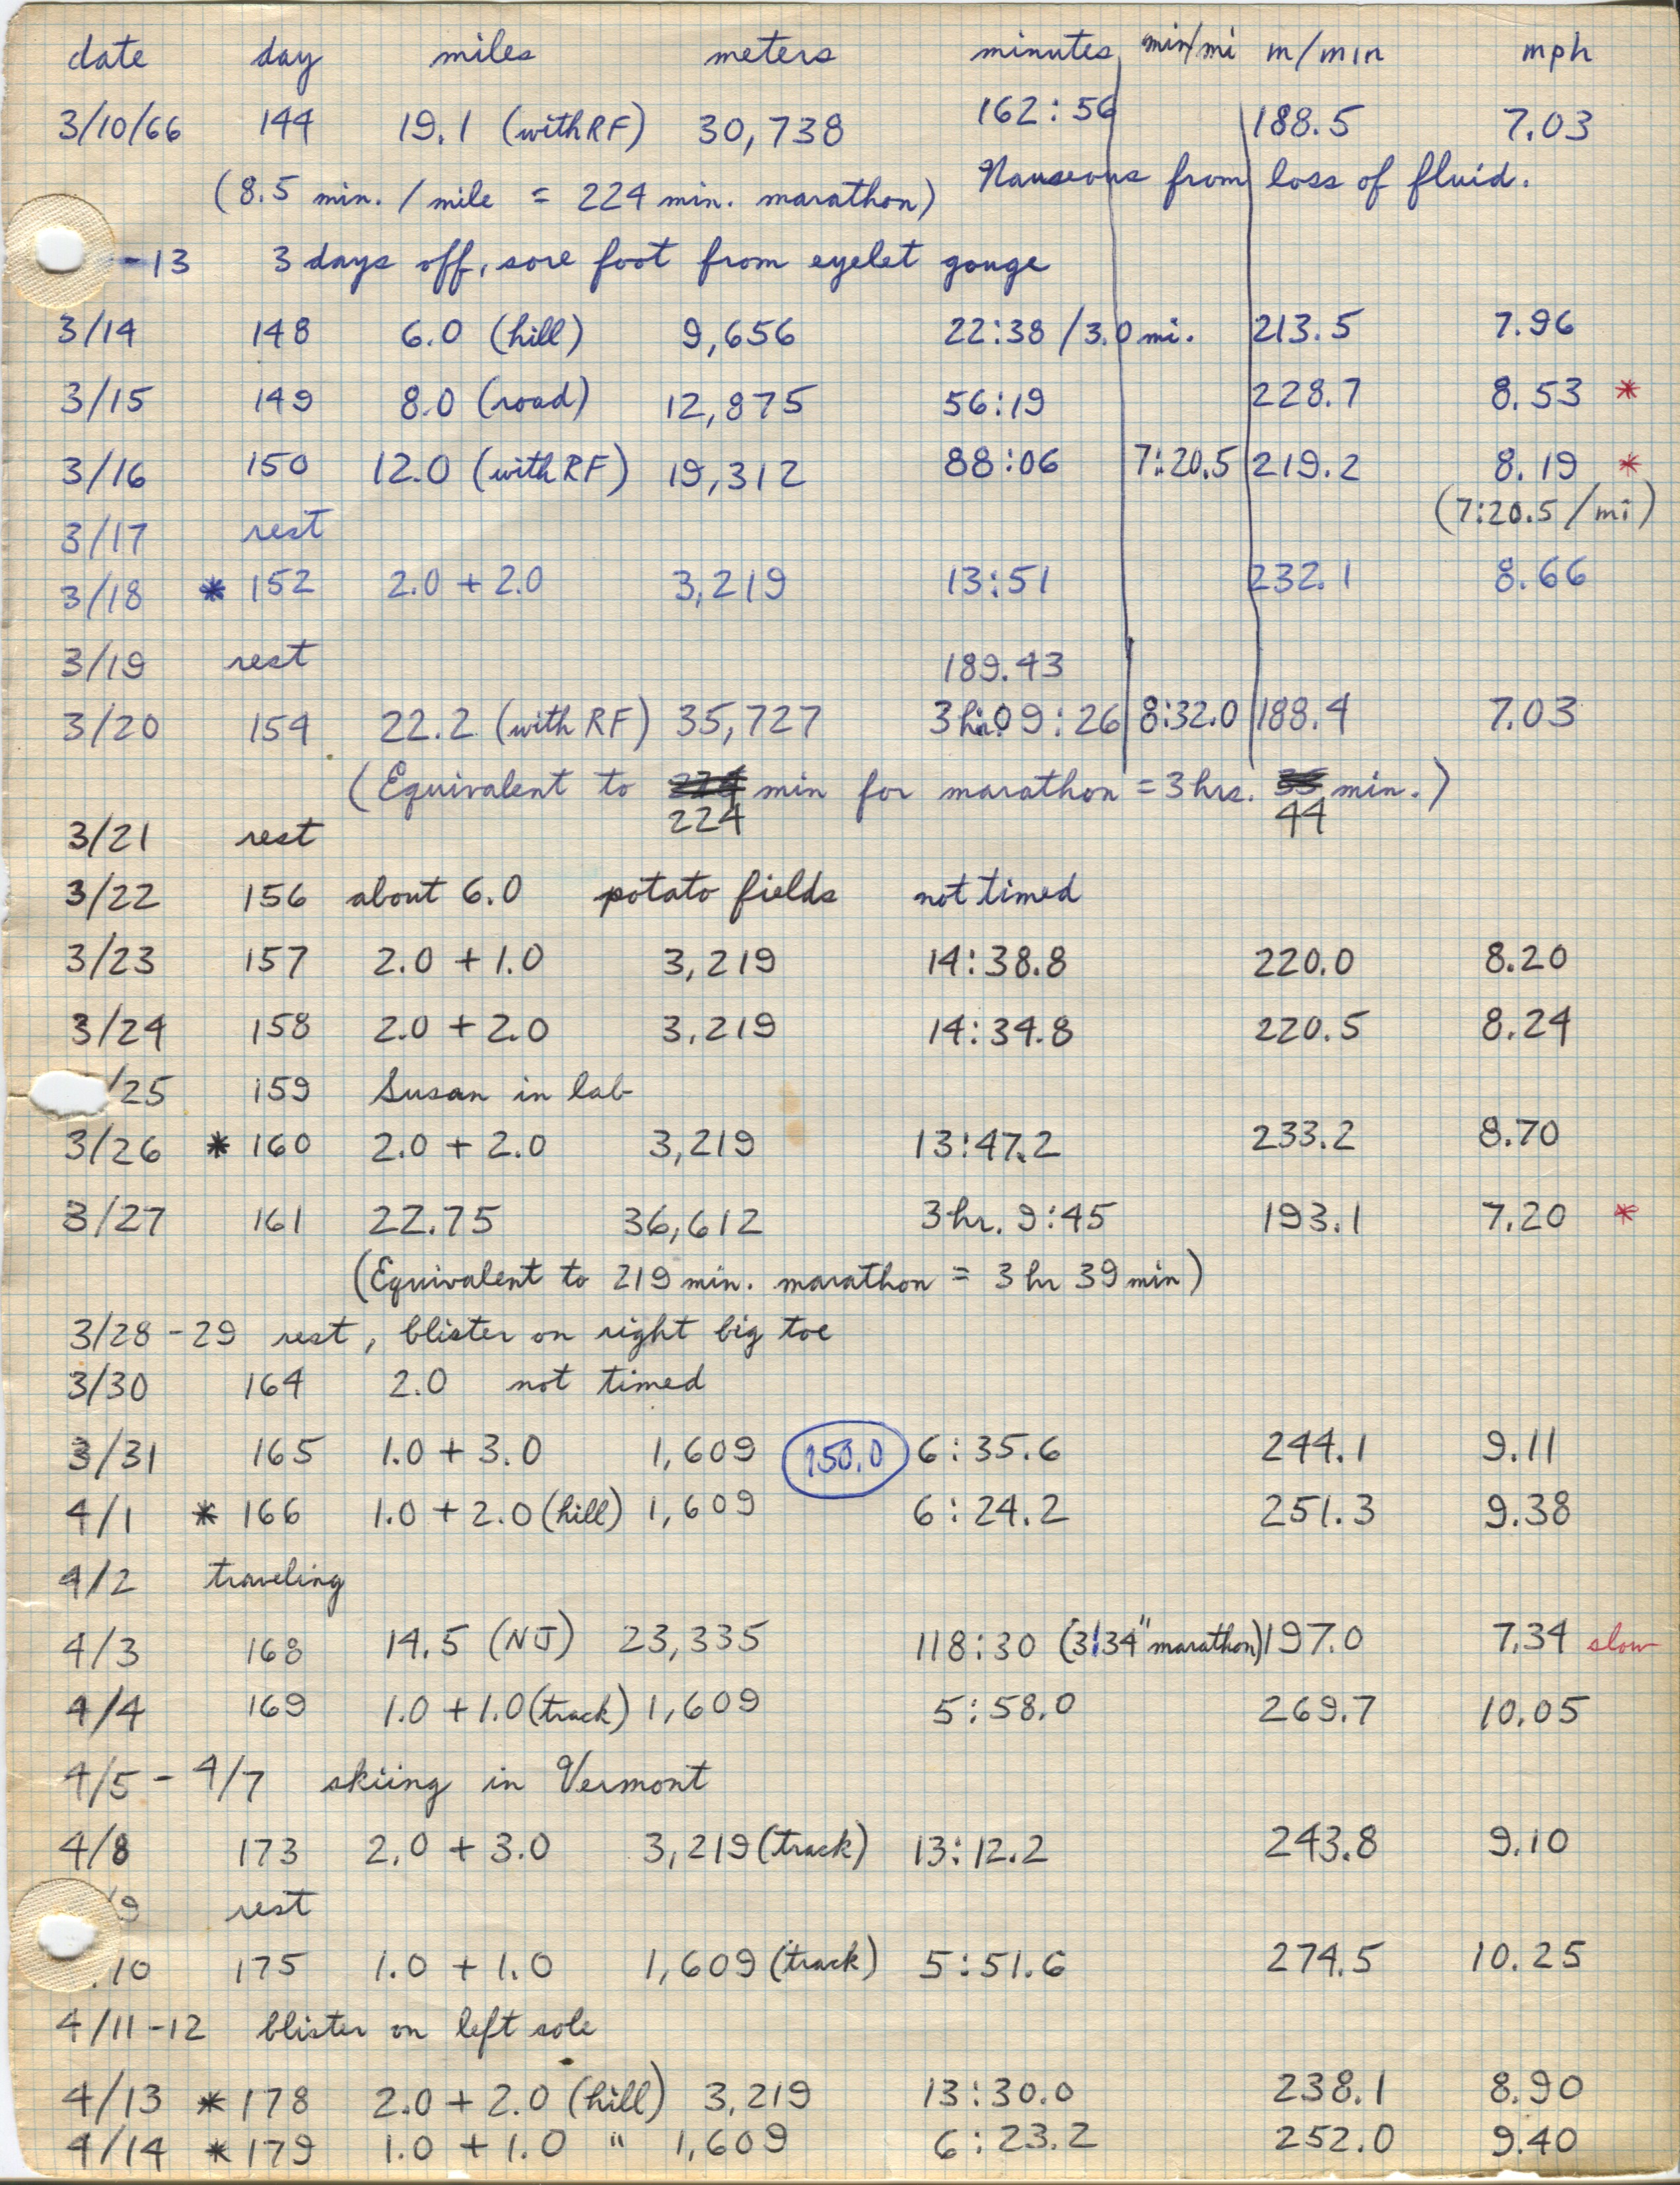 date day miles meters minutes min/mi m/min mph
3/10/66 144 19.1 (with RF) 30,738 162:56 188.5 7.03
(8.5 min. / mile = 224 min. marathon) Nauseous from loss of fluid.
-13 3 days off, sore foot from eyelet gouge
3/14 148 6.0 (hill) 9,656 22:38 / 3.0 mi. 213.5 7.96
3/15 149 8.0 (road) 12,875 56:19 228.7 8.53 *
3/16 150 12.0 (with RF) 19,312 88:06 7:20.5 219.2 8.19 *
(7:20.5 / mi)
3/17 rest
3/18 * 152 2.0 + 2.0 3,219 13:51 232.1 8.66
3/19 rest 189.43
3/20 154 22.2 (with RF) 35,727 3 hr. 09:26 8:32.0 188.4 7.03
(Equivalent to min for marathon = 3 hrs. min.)
224 44
3/21 rest
3/22 156 about 6.0 potato fields not timed
3/23 157 2.0 + 1.0 3,219 14:38.8 220.0 8.20
3/24 158 2.0 + 2.0 3,219 14:34.8 220.5 8.24
/25 159 Susan in lab
3/26 * 160 2.0 + 2.0 3,219 13:47.2 233.2 8.70
3/27 161 22.75 36,612 3 hr. 9:45 193.1 7.20 *
(Equivalent to 219 min. marathon = 3 hr 39 min)
3/28 - 29 rest, blister on right big toe
3/30 164 2.0 not timed
3/31 165 1.0 + 3.0 1,609 150.0 6:35.6 244.1 9.11
4/1 * 166 1.0 + 2.0 (hill) 1,609 6:24.2 251.3 9.38
4/2 traveling
4/3 168 14.5 (NJ) 23,335 118:30 (3:34" marathon) 197.0 7.34 slow
4/4 169 1.0 + 1.0 (track) 1,609 5:58.0 269.7 10.05
4/5 - 4/7 skiing in Vermont
4/8 173 2.0 + 3.0 3,219 (track) 13:12.2 243.8 9.10
/9 rest
10 175 1.0 + 1.0 1,609 (track) 5:51.6 274.5 10.25
4/11-12 blister on left sole
4/13 * 178 2.0 + 2.0 (hill) 3,219 13:30.0 238.1 8.90
4/14 * 179 1.0 + 1.0 " 1,609 6:23.2 252.0 9.40